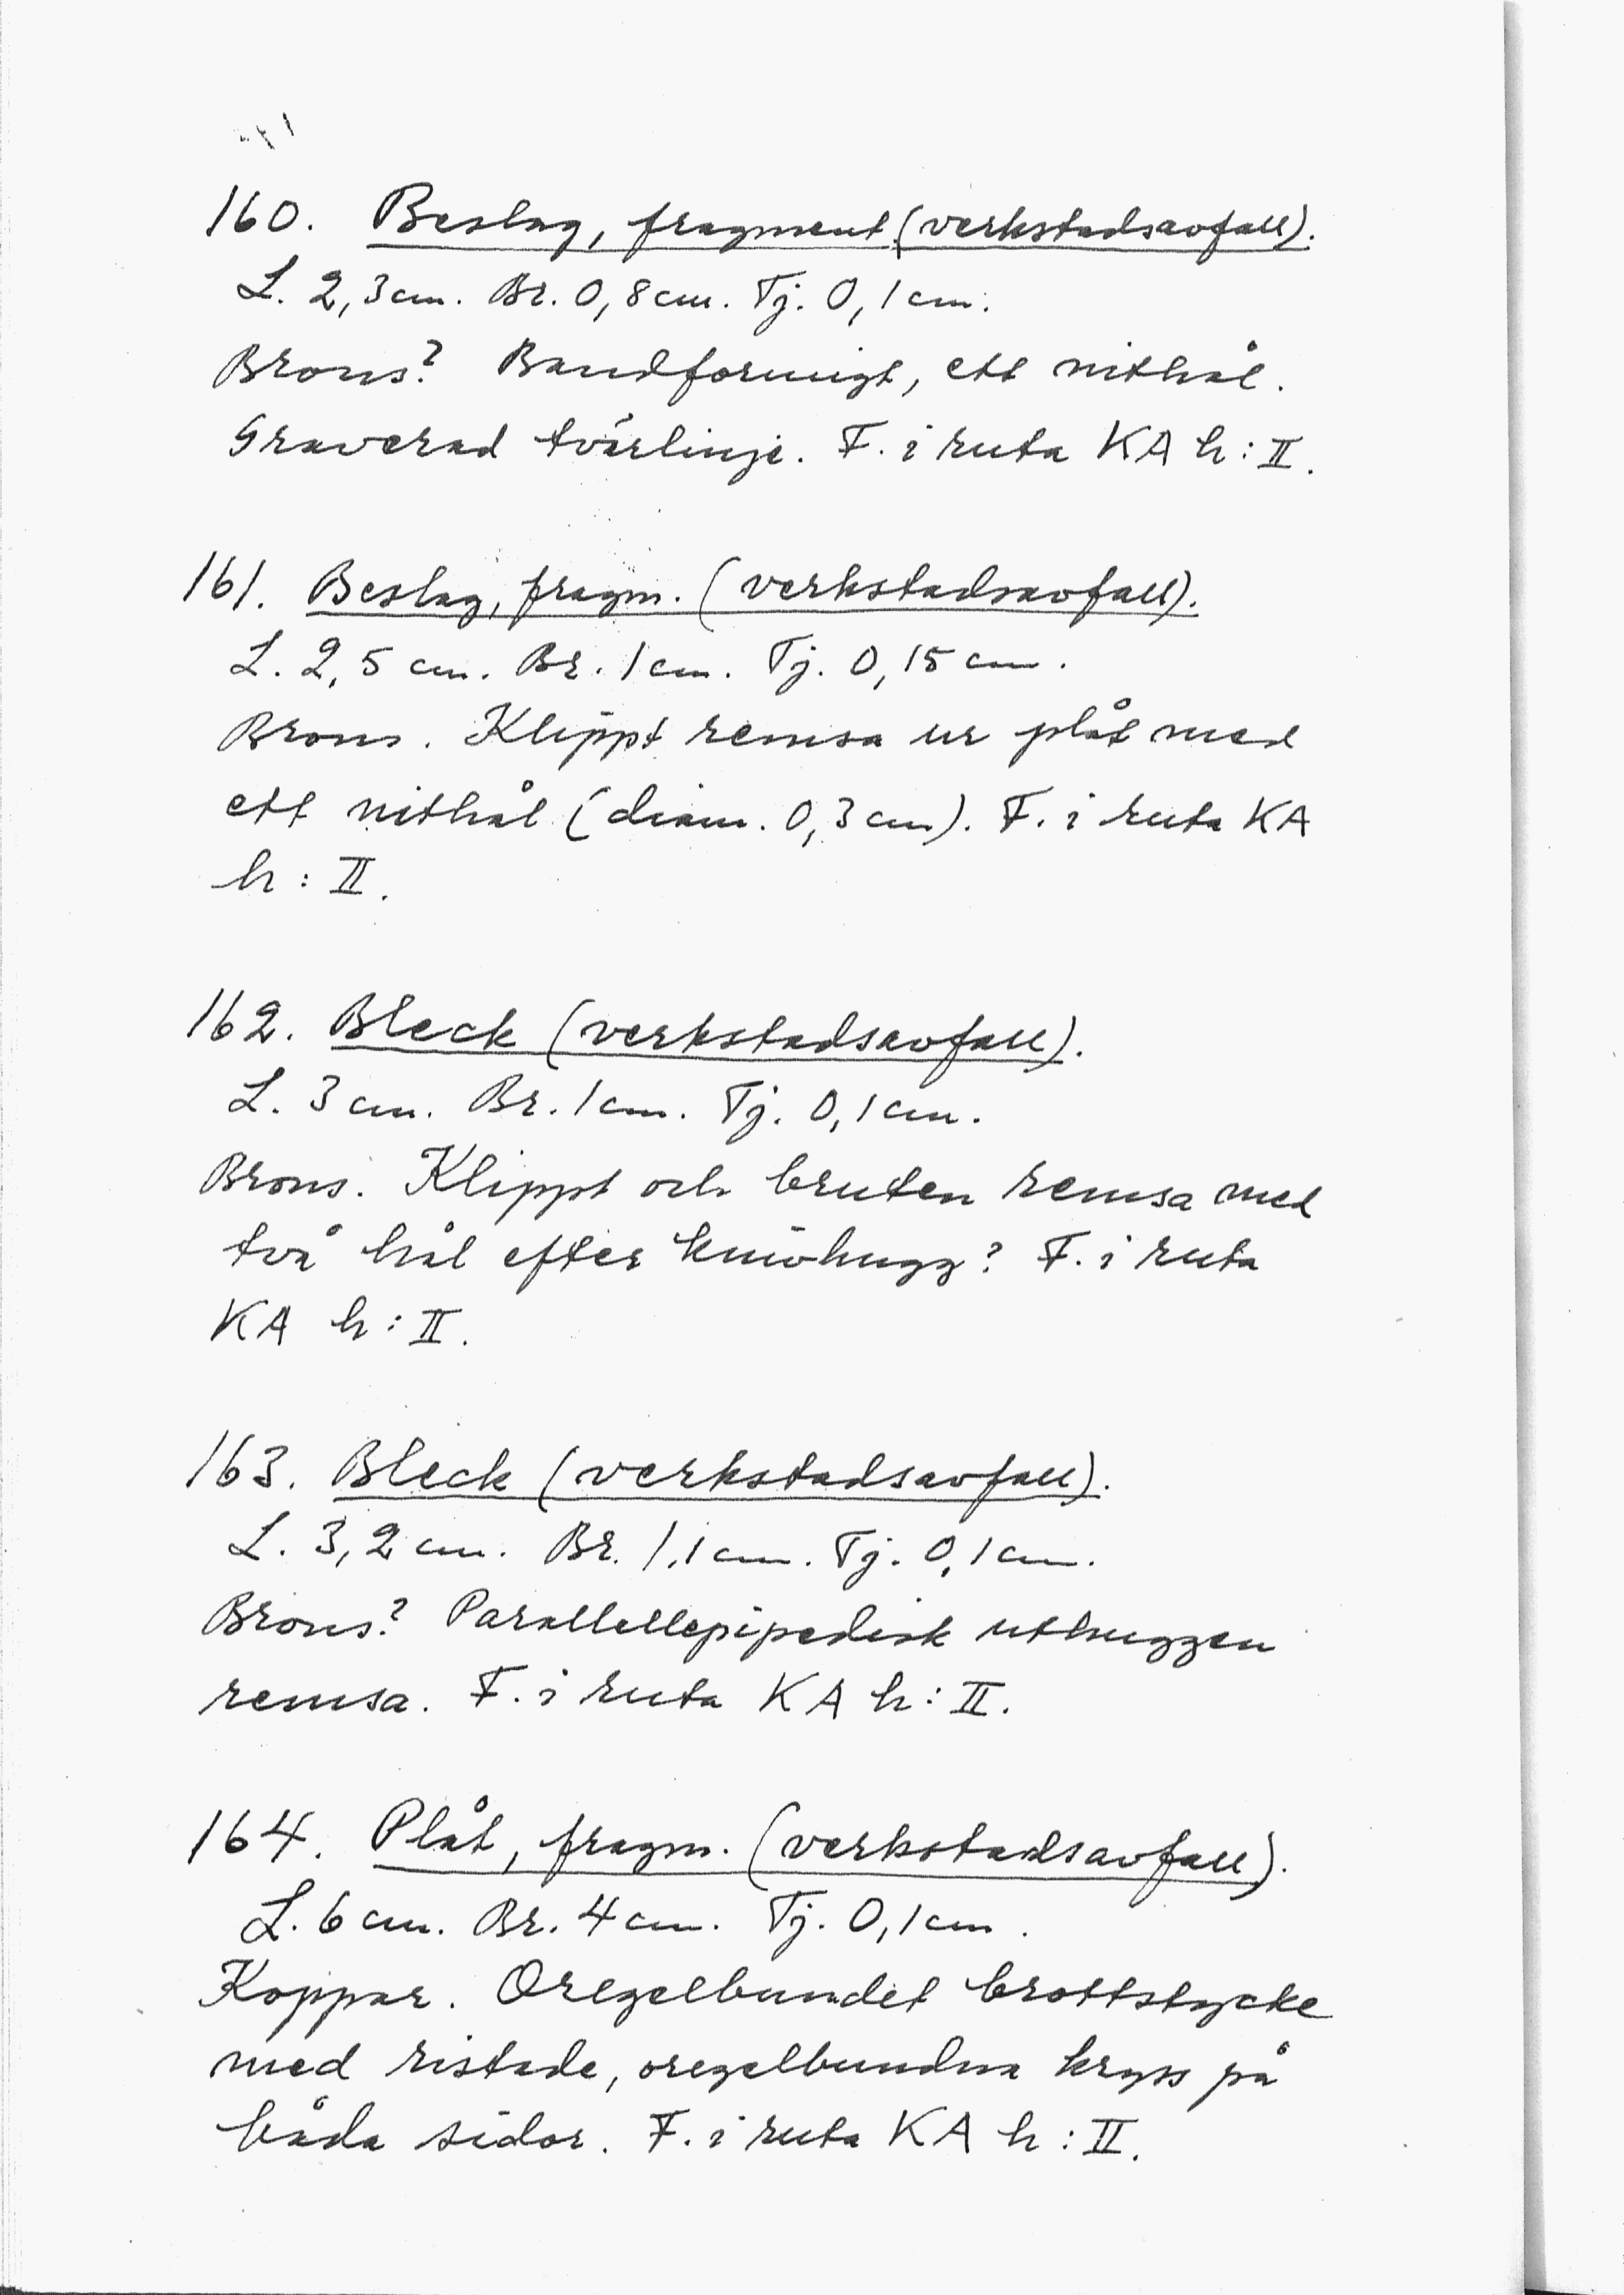 160. Beslag, fragment (verkstadsavfall).
L. 2,3 cm. Br. 0,8 cm. Tj. 0,1 cm.
Brons? Bandformigt, ett nithål.
Graverad tvärlinje. F. i ruta KA h: II.
161. Beslag, fragm. (verkstadsavfall).
L. 2,5 cm. Br. 1 cm. Tj. 0,15 cm.
Brons. Klippt remsa ur plåt med
ett nithål (diam. 0,3 cm). F. i ruta KA
h: II.
162. Bleck (verkstadsavfall).
L. 3 cm. Br. 1 cm. Tj. 0,1 cm.
Brons. Klippt och bruten remsa med
två hål efter knivhugg? F. i ruta
KA h: II.
163. Bleck (verkstadsavfall).
L. 3,2 cm. Br. 1,1 cm. Tj. 0,1 cm.
Brons? Parallellepipedisk uthuggen
remsa. F. i ruta KA h: II.
164. Plåt, fragm. (verkstadsavfall).
L. 6 cm. Br. 4 cm. Tj. 0,1 cm.
Koppar. Oregelbundet brottstycke
med ristade, oregelbundna kryss på
båda sidor. F. i ruta KA h: II.